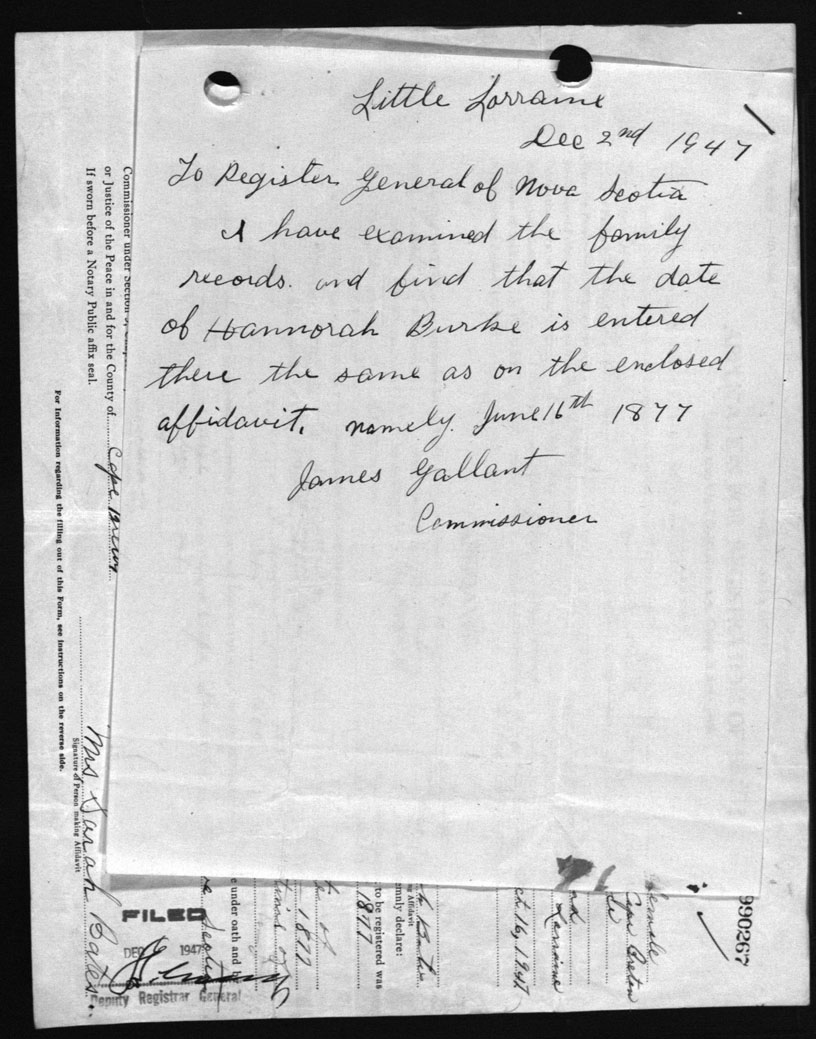 Little Lorraine
Dec 2nd 1947
To Register General of Nova Scotia
I have examined the family
records. and find that the date
of Hannorah Burke is entered
there the same as on the enclosed
affidavit, namely June 16th 1877
James Gallant
Commissioner
Commissioner under Section
or Justice of the Peace in and for the County of
If sworn before a Notary Public affix seal.
For Information regarding the filling out of this Form, see instructions on the reverse side.
Mrs Sarah Bates.
Signature of Person making Affidavit
FILED
DEC 1947
Deputy Registrar General
e under oath and
1877
to be registered was
1877
mnly declare:
Affidavit
16, 1947
Lorraine
Cape Breton
female
990267